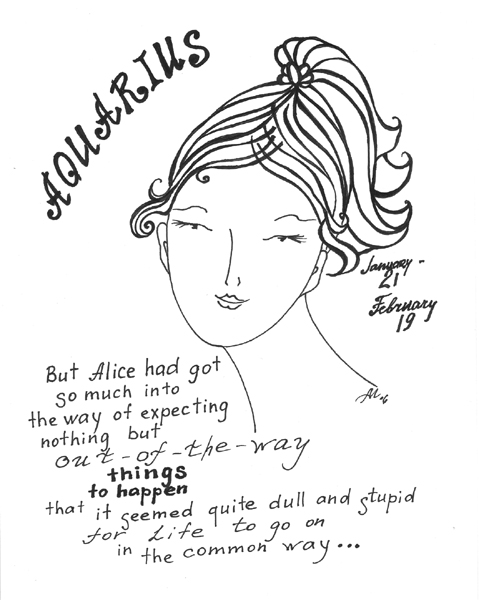 AQUARIUS
January -
21
February
19
But Alice had got
so much into
the way of expecting
nothing but
out-of-the-way
things
to happen
that it seemed quite dull and stupid
for Life to go on
in the common way...